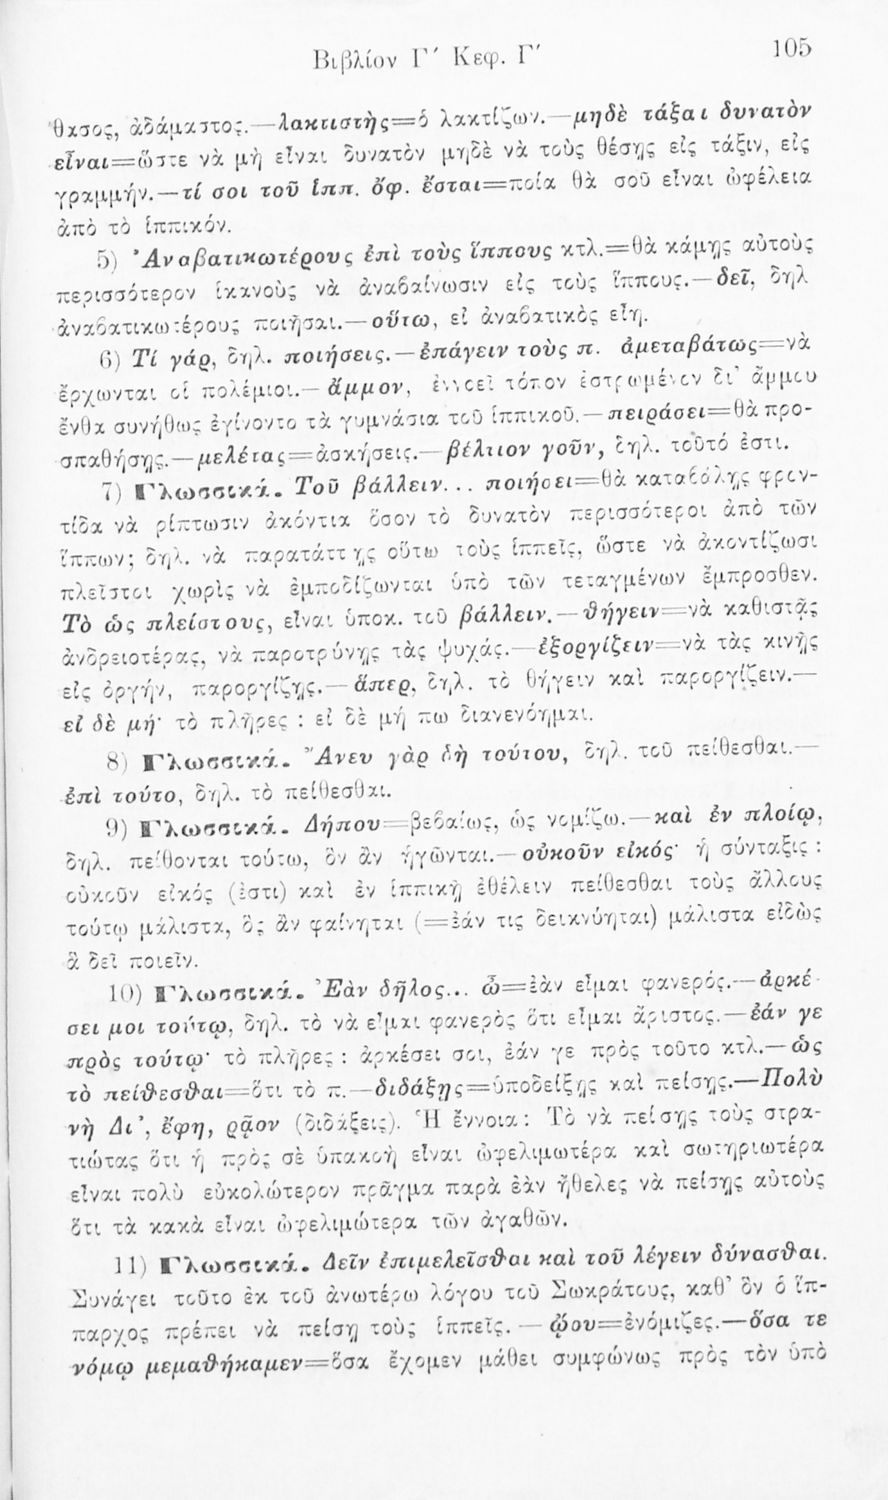 Βιβλίον Γ΄ Κεφ. Γ΄ 105
θασος, ἀδάμαστος.—λακτιστὴς=ὁ λακτίζων.—μηδὲ τάξαι δυνατὸν
εἶναι=ὥστε νὰ μὴ εἶναι δυνατὸν μηδὲ νὰ τοὺς θέσῃς εἰς τάξιν, εἰς
γραμμήν.—τί σοι τοῦ ἱππ. ὄφ. ἔσται=ποία θὰ σοῦ εἶναι ὠφέλεια
ἀπὸ τὸ ἱππικόν.
5) Ἀναβατικωτέρους ἐπὶ τοὺς ἵππους κτλ.=θὰ κάμῃς αὐτοὺς
περισσότερον ἱκανοὺς νὰ ἀναβαίνωσιν εἰς τοὺς ἵππους.—δεῖ, δηλ
ἀναβατικωτέρους ποιῆσαι.—οὕτω, εἰ ἀναβατικὸς εἴη.
6) Τί γάρ, δηλ. ποιήσεις.—ἐπάγειν τοὺς π. ἀμεταβάτως=νὰ
ἔρχωνται οἱ πολέμιοι.—ἄμμον, ἐννοεῖ τόπον ἐστρωμένον δι᾽ ἄμμου
ἔνθα συνήθως ἐγίνοντο τὰ γυμνάσια τοῦ ἱππικοῦ.—πειράσει=θὰ προ-
σπαθήσῃς.—μελέτας=ἀσκήσεις.—βέλτιον γοῦν, δηλ. τοῦτό ἐστι.
7) Γλωσσικά. Τοῦ βάλλειν... ποιήσει=θὰ καταβάλῃς φρον-
τίδα νὰ ρίπτωσιν ἀκόντια ὅσον τὸ δυνατὸν περισσότεροι ἀπὸ τῶν
ἵππων; δηλ. νὰ παρατάττῃς οὕτω τοὺς ἱππεῖς, ὥστε νὰ ἀκοντίζωσι
πλεῖστοι χωρὶς νὰ ἐμποδίζωνται ὑπὸ τῶν τεταγμένων ἔμπροσθεν.
Τὸ ὡς πλείστους, εἶναι ὑποκ. τοῦ βάλλειν.—θήγειν=νὰ καθιστᾷς
ἀνδρειοτέρας, νὰ παροτρύνῃς τὰς ψυχάς.—ἐξοργίζειν=νὰ τὰς κινῇς
εἰς ὀργήν, παροργίζῃς.—ἅπερ, δηλ. τὸ θήγειν καὶ παροργίζειν.—
εἰ δὲ μή· τὸ πλῆρες : εἰ δὲ μή πω διανενόημαι.
8) Γλωσσικά. Ἄνευ γὰρ δὴ τούτου, δηλ. τοῦ πείθεσθαι.—
ἐπὶ τούτο, δηλ. τὸ πείθεσθαι.
9) Γλωσσικά. Δήπου=βεβαίως, ὡς νομίζω.—καὶ ἐν πλοίῳ,
δηλ. πείθονται τούτῳ, ὃν ἂν ἡγῶνται.—οὐκοῦν εἰκός· ἡ σύνταξις :
οὐκοῦν εἰκός (ἐστι) καὶ ἐν ἱππικῇ ἐθέλειν πείθεσθαι τοὺς ἄλλους
τούτῳ μάλιστα, ὃς ἂν φαίνηται (=ἐάν τις δεικνύηται) μάλιστα εἰδὼς
ἃ δεῖ ποιεῖν.
10) Γλωσσικά. Ἐὰν δῆλος... ὦ=ἐὰν εἶμαι φανερός.—ἀρκέ-
σει μοι τούτῳ, δηλ. τὸ νὰ εἶμαι φανερὸς ὅτι εἶμαι ἄριστος.—ἐάν γε
πρὸς τούτῳ· τὸ πλῆρες : ἀρκέσει σοι, ἐάν γε πρὸς τοῦτο κτλ.—ὡς
τὸ πείθεσθαι=ὅτι τὸ π.—διδάξῃς=ὑποδείξῃς καὶ πείσῃς.—Πολὺ
νὴ Δι᾽, ἔφη, ρᾷον (διδάξεις). Ἡ ἔννοια: Τὸ νὰ πείσῃς τοὺς στρα-
τιώτας ὅτι ἡ πρὸς σὲ ὑπακοὴ εἶναι ὠφελιμωτέρα καὶ σωτηριωτέρα
εἶναι πολὺ εὐκολώτερον πρᾶγμα παρὰ ἐὰν ἤθελες νὰ πείσῃς αὐτοὺς
ὅτι τὰ κακὰ εἶναι ὠφελιμώτερα τῶν ἀγαθῶν.
11) Γλωσσικά. Δεῖν ἐπιμελεῖσθαι καὶ τοῦ λέγειν δύνασθαι.
Συνάγει τοῦτο ἐκ τοῦ ἀνωτέρω λόγου τοῦ Σωκράτους, καθ᾽ ὃν ὁ ἵπ-
παρχος πρέπει νὰ πείσῃ τοὺς ἱππεῖς.—ᾤου=ἐνόμιζες.—ὅσα τε
νόμῳ μεμαθήκαμεν=ὅσα ἔχομεν μάθει συμφώνως πρὸς τὸν ὑπὸ